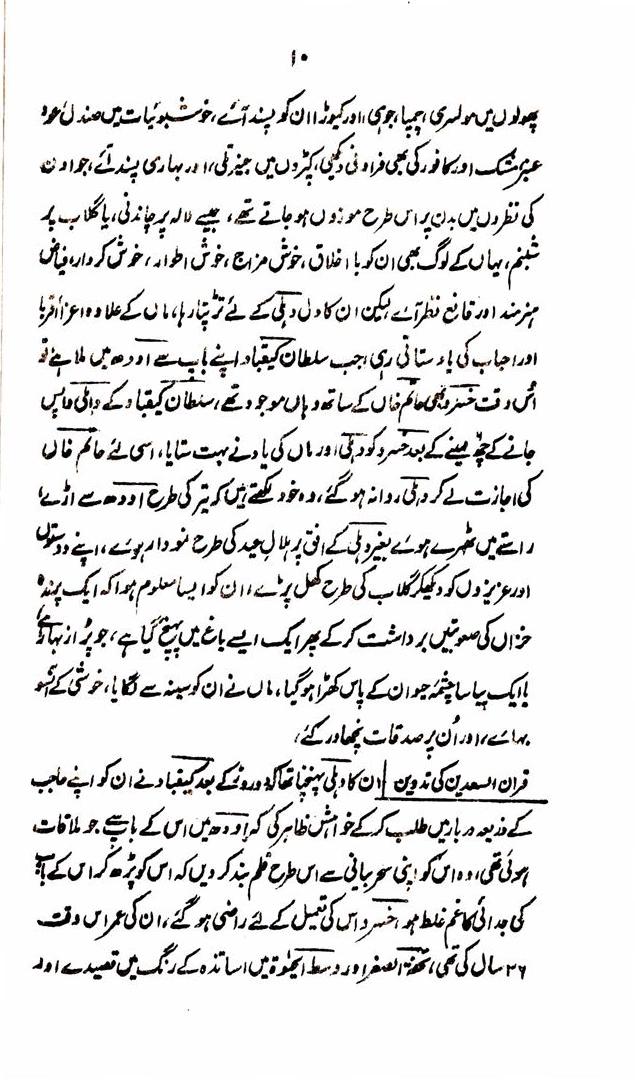 ۱۰
پھولوں میں مولسری، چمپا، جوہی، اور کیوڑا ان کو پسند آئے، خوشبوئیات میں صندل عود
عنبر مشک اور کافور کی بھی فراوانی دیکھی، کپڑوں میں جیز تلی، اور بہاری پسند آئے، جو ان
کی نظروں میں بدن پر اس طرح موزوں ہو جاتے تھے، جیسے لالہ پر چاندنی، یا گلاب پر
شبنم، یہاں کے لوگ بھی ان کو با اخلاق، خوش مزاج، خوش اطوار، خوش کردار، فیاض
ہنرمند اور قانع نظر آئے لیکن ان کا دل دہلی کے لئے تڑپتا رہا، ماں کے علاوہ اعزا و اقربا
اور احباب کی یاد ستاتی رہی، جب سلطان کیقباد اپنے باپ سے اودھ میں ملا ہے تو
اُس وقت خسرو بھی حاتم خاں کے ساتھ وہاں موجود تھے، سلطان کیقباد کے دہلی واپس
جانے کے چھ مہینے کے بعد خسرو کو دہلی اور ماں کی یاد نے بہت ستایا، اسی لئے حاتم خاں
کی اجازت لے کر دہلی روانہ ہو گئے، وہ خود لکھتے ہیں کہ تیر کی طرح اودھ سے اڑے،
راستے میں ٹھہرے ہوئے بغیر دہلی کے افق پر ہلال عید کی طرح نمودار ہوئے، اپنے دوستوں
اور عزیزوں کو دیکھکر گلاب کی طرح کھل پڑے، ان کو ایسا معلوم ہوا کہ ایک پرندہ
خزاں کی صعوبتیں برداشت کر کے پھر ایک ایسے باغ میں پہنچ گیا ہے، جو پُر از بہار ہے،
یا ایک پیاسا چشمۂ حیوان کے پاس کھڑا ہو گیا، ماں نے ان کو سینہ سے لگایا، خوشی کے آنسو
بہائے، اور اُن پر صدقات نچھاور کئے،
قران السعدین کی تدوین ان کا دہلی پہنچنا تھا کہ دو روز کے بعد کیقباد نے ان کو اپنے حاجب
کے ذریعہ دربار میں طلب کر کے خواہش ظاہر کی کہ اودھ میں اس کے باپ سے جو ملاقات
ہوئی تھی، وہ اس کو اپنی سحر بیانی سے اس طرح قلم بند کر دیں کہ اس کو پڑھ کر اس کے باپ
کی جدائی کا غم غلط ہو، خسرو اس کی تعمیل کے لئے راضی ہو گئے، ان کی عمر اس وقت
۳۶ سال کی تھی، تحفۃ الصغر اور وسط الحیٰوۃ میں اساتذہ کے رنگ میں قصیدے اور